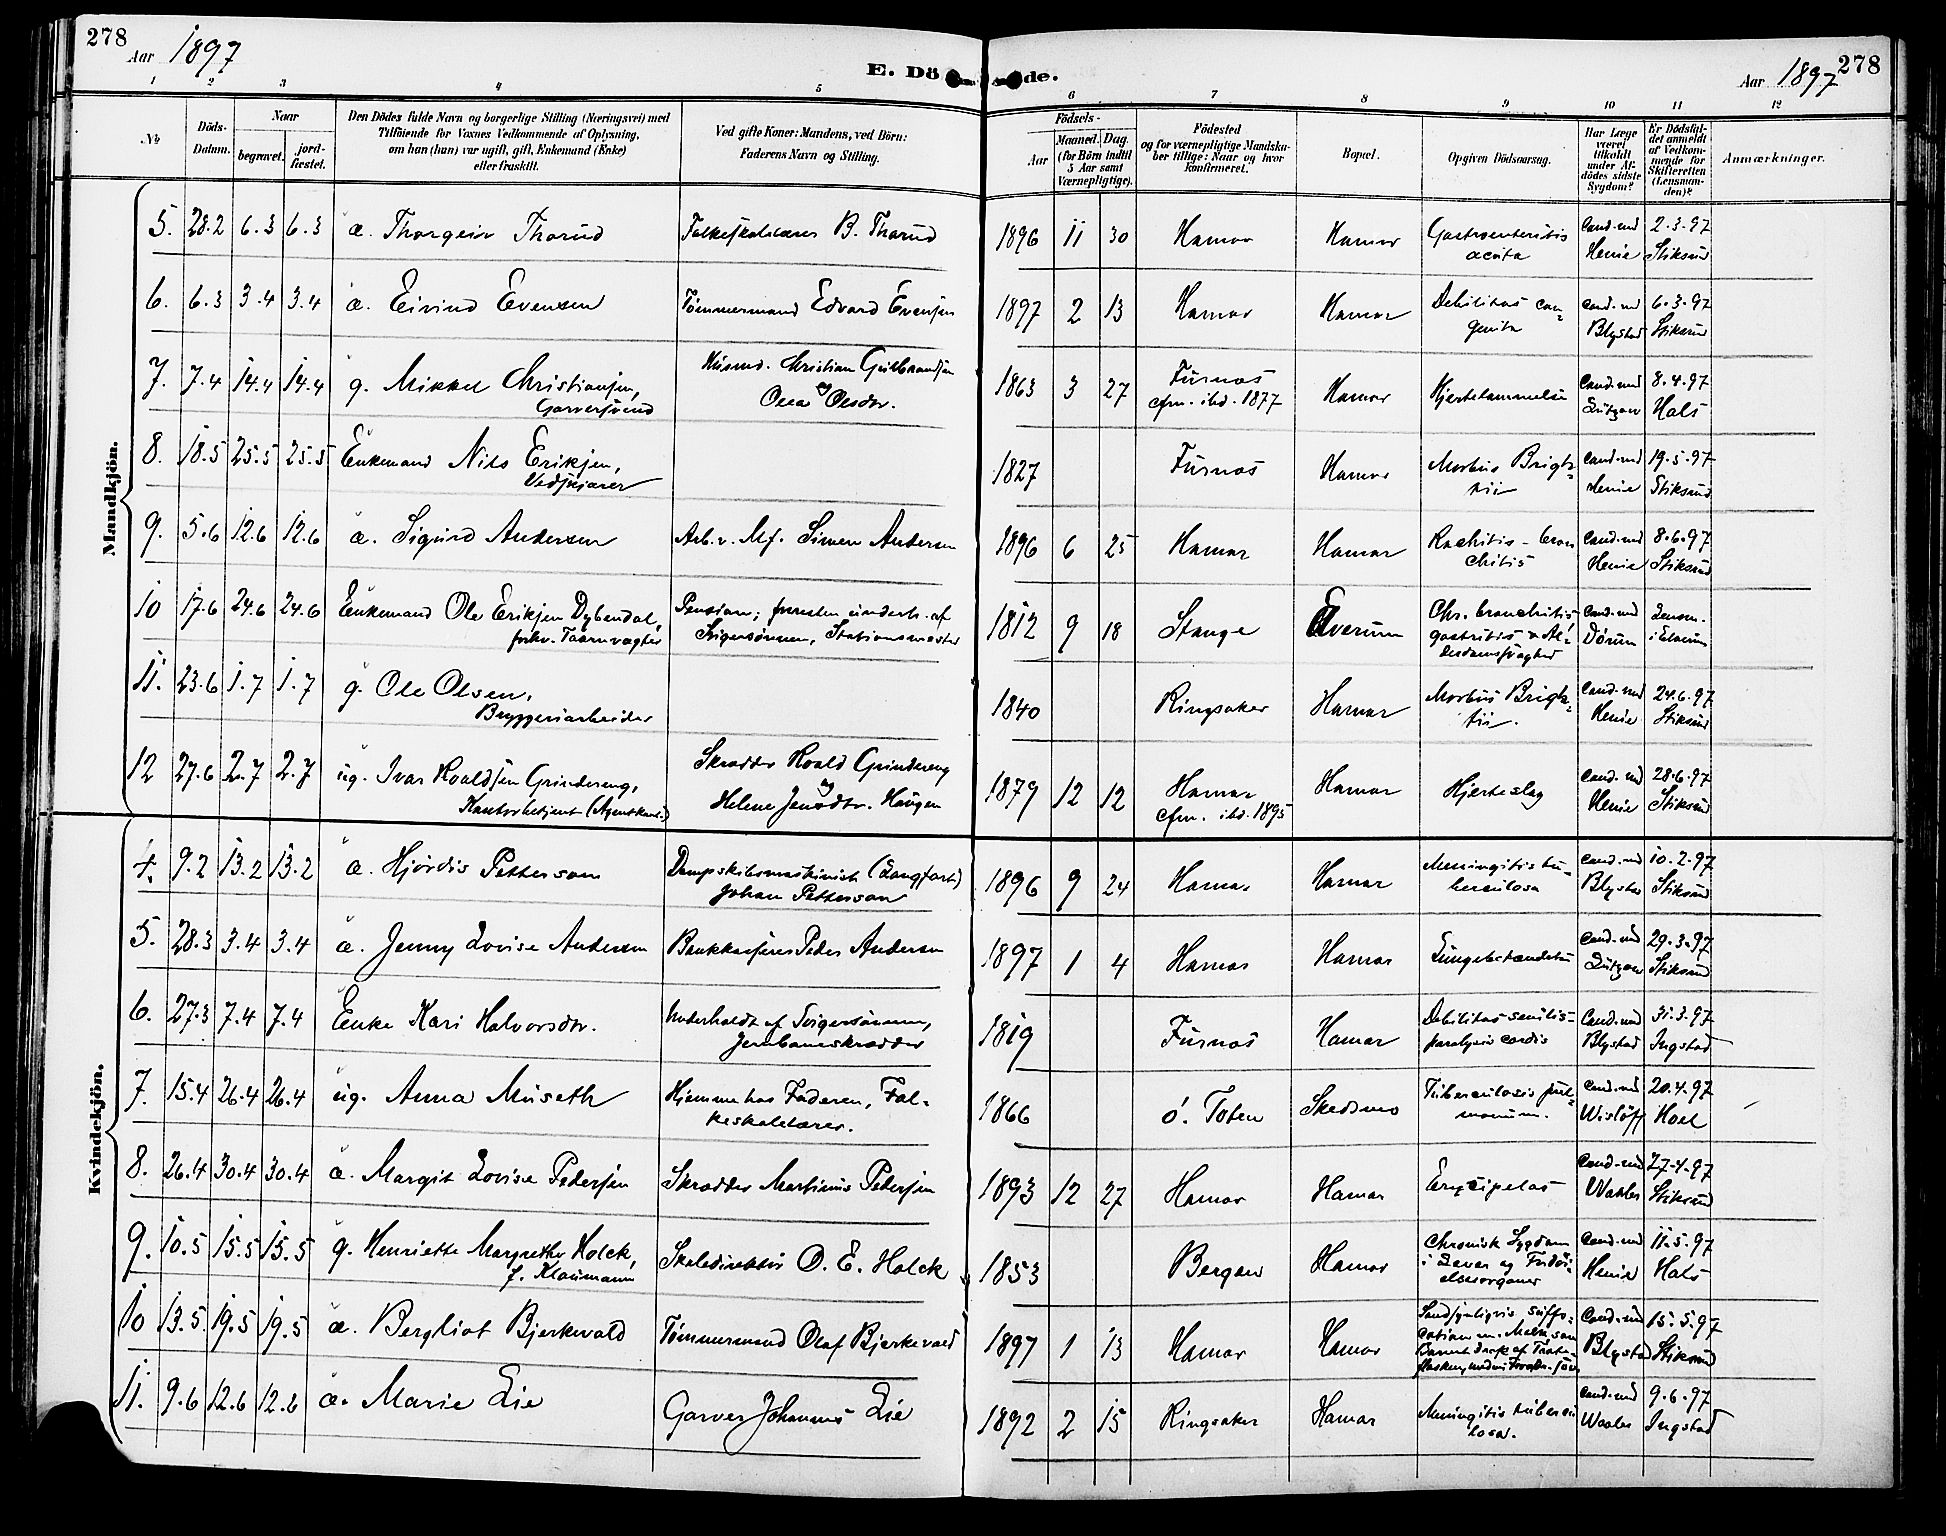 278
Aar 1897
E. Dö
de.
Aar 1897
278
1 2 3 4 5 6 7 8 9 10 11 12
No
Döds-
Datum.
Naar
begravet.
jord-
fæstet.
Den Dödes fulde Navn og borgerlige Stilling (Næringsvei) med
Tilföiende for Voxnes Vedkommende af Oplysning,
om han (hun) var ugift, gift, Enkemand (Enke)
eller fraskilt.
Ved gifte Koner: Mandens, ved Börn:
Faderens Navn og Stilling.
Födsels-
Aar
Maaned.
Dag.
(for Börn indtil
5 Aar samt
Værnepligtige).
Födested
og for værnepligtige Mandska-
ber tillige: Naar og hvor
konfirmeret.
Bopæl.
Opgiven Dödsaarsag.
Har Læge
været
tilkaldt
under Af-
dödes sidste
Sygdom?
Er Dödsfal-
det anmeldt
af Vedkom-
mende for
Skifteretten
(Lensman-
den)?
Anmærkninger.
Mandkjön.
5. 28.2 6.3 6.3 æ. Thorgeir Thorud Folkeskolelærer B. Thorud 1896 11 30 Hamar Hamar Gastroenteritis cand. med 2.3.97
acuta Henie Stiksrud
6. 6.3 3.4 3.4 æ. Eivind Evensen Tømmermand Edvard Evensen 1897 2 13 Hamar Hamar Debilitas con- cand. md 6.3.97
genita Blystad Stiksrud
7. 7.4 14.4 14.4 g. Mikkel Christiansen, Husmd. Christian Gulbrandsen 1863 3 27 Furnæs Hamar Hjertelammelse cand. med 8.4.97
Garversvend og Olea Olsdtr. cfm. ibd. 1877 Lützow Hals
8. 18.5 25.5 25.5 Enkemand Nils Eriksen, 1827 Furnæs Hamar Morbus Brigh- cand. md 19.5.97
Vedskjærer tii Henie Stiksrud
9. 5.6 12.6 12.6 æ. Sigurd Andersen Arb. v. Mj. Simen Andersen 1896 6 25 Hamar Hamar Rachitis - bron cand. md 8.6.97
chitis Henie Stiksrud
10 17.6 24.6 24.6 Enkemand Ole Eriksen Dybendal, Pension; forresten underh. af 1812 9 18 Stange Elverum Chr. bronchitis cand. md Lensm.
forhv. Taarnvægter Svigersønnen, Stationsmester gastritis & Al- Dørum i Elverum
derdomssvaghed
11. 23.6 1.7 1.7 g. Ole Olsen, 1840 Ringsaker Hamar Morbus Brigh- cand. md 24.6.97
Bryggeriarbeider tii. Henie Stiksrud
12 27.6 2.7 2.7 ug. Ivar Roaldsen Grindereng, Skrædder Roald Grindereng 1879 12 12 Hamar Hamar Hjerteslag cand. md 28.6.97
Kontorbetjent (Agentkont.) og Helene Jensdtr. Haugen cfm. ibd. 1895 Henie Stiksrud
Kvindekjön.
4. 9.2 13.2 13.2 æ. Hjørdis Petterson Dampskibsmaskinist (Langfart) 1896 9 24 Hamar Hamar Meningitis tu- cand. md 10.2.97
Johan Petterson berculosa Blystad Stiksrud
5. 28.3 3.4 3.4 æ. Jenny Lovise Andersen Bankkasserer Peder Andersen 1897 1 4 Hamar Hamar Lungebetændelse cand. md 29.3.97
Lützow Stiksrud
6. 27.3 7.4 7.4 Enke Kari Halvorsdtr. Underholdt af Svigersønnen, 1819 Furnæs Hamar Debilitas senilis- Cand. md 31.3.97
Jernbaneskrædder paralysis cordis Blystad Ingstad
7. 15.4 26.4 26.4 ug. Anna Museth Hjemme hos Faderen, Fol- 1866 Ö. Toten Skedsmo Tuberculosis pul- cand. md 20.4.97
keskolelærer. monum. Wisløff Hoel
8. 26.4 30.4 30.4 æ. Margit Lovise Pedersen Skrædder Martinius Pedersen 1893 12 27 Hamar Hamar Erysipelas cand. md 27.4.97
Waaler Stiksrud
9. 10.5 15.5 15.5 g. Henriette Margrethe Holck, Skoledirektør O. E. Holck 1853 Bergen Hamar Chronisk Sygdom cand. md 11.5.97
f. Klaumann i Lever og Fordøi- Henie Hals
elsesorganer
10 13.5 19.5 19.5 æ. Bergliot Bjerkevold Tømmermand Olaf Bjerkevold 1897 1 13 Hamar Hamar Sandsynligvis suffo- Cand. md 15.5.97
cation m. Melk, som Blystad Stiksrud
Barnet drak af
11. 9.6 12.6 12.6 æ. Marie Lie Garver Johannes Lie 1892 2 15 Ringsaker Hamar Meningitis tubercu cand. md 9.6.97
losa. Waaler Ingstad